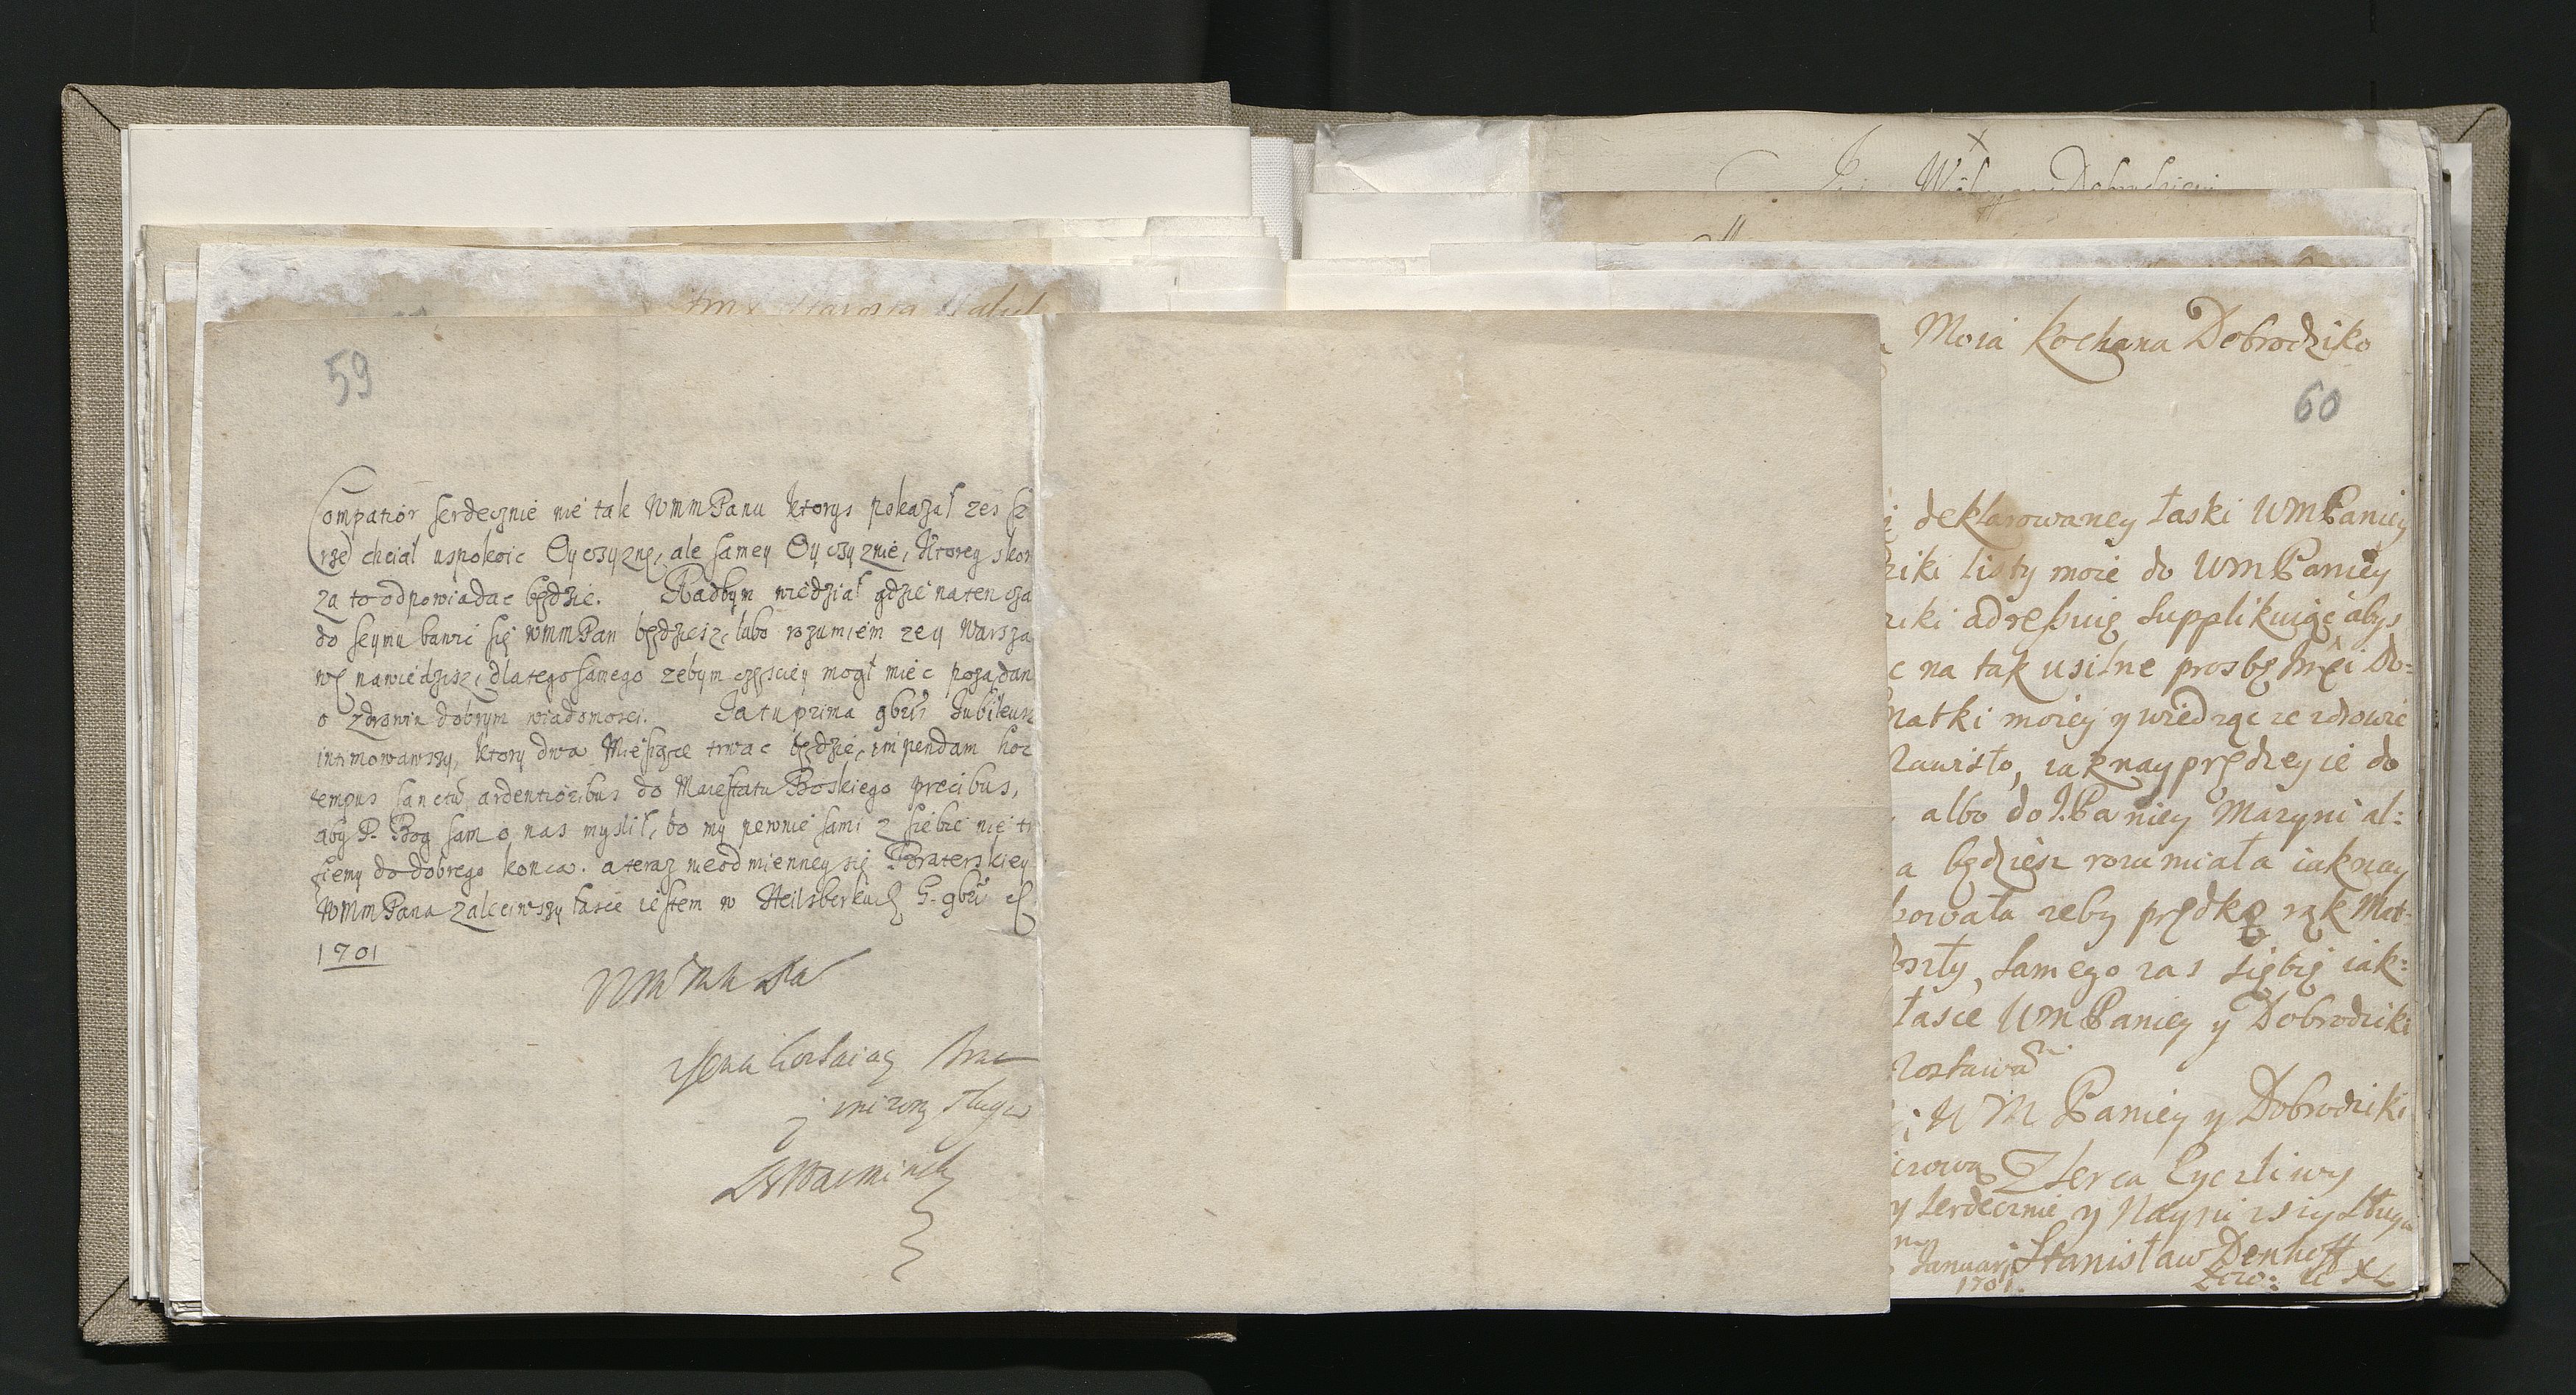 59
Compatior serdecznie nie tak WMM Panu ktorys pokazał zes sz
rze chciał uspokoic Oyczyznę, ale samey Oyczyznie, ktorey skor
za to odpowiadac będzie. Radbym wiedział gdzie naten cza
do seymu bawic się WMMPan będziesz, lubo rozumiem ze y Warsza
wę nawiedzisz, dlategosamego zebym częsciey mogł miec pożądan
o zdrowiu dobrym wiadomosci. Ja tu prima 9bris Jubileusz
intimowawszy, ktory dwa Miesiące trwac będzie, impendam hoc
tempus sanctũ ardentioribus do Maiestatu Boskiego precibus,
aby P. Bog sam o nas myslił, bo my pewnie sami z siebie nie tr
ziemy do dobrego konca. a teraz nieodmienney się Braterskiey
WMMPana zaleciwszy łasce iestem w Heilsberku d 5. 9bris
1701
60
Moia Kochana Dobrodziko
deklarowaney łaski WMPaniey
ziki listy moie do WMPaniey
ziki adressuię supplikuiąc abys
c na tak usilne prosbę Do=
Matki moiey y wiedząc ze zdrowie
zawisło, iaknayprędzey ie do
albo do J.Paniey Maryni al:
a będziesz rozumiała iaknay
bowała zeby prędko rąk Mat-
oszły, samego zas siębię iak=
łasce WMPaniey y Dobrodziki
zostawa
WM Paniey y Dobrodziki
Zserca Zyczliwy
y serdecznie y Nayniszszy Sługa
Januarij Stanisław Denhoff
1701.